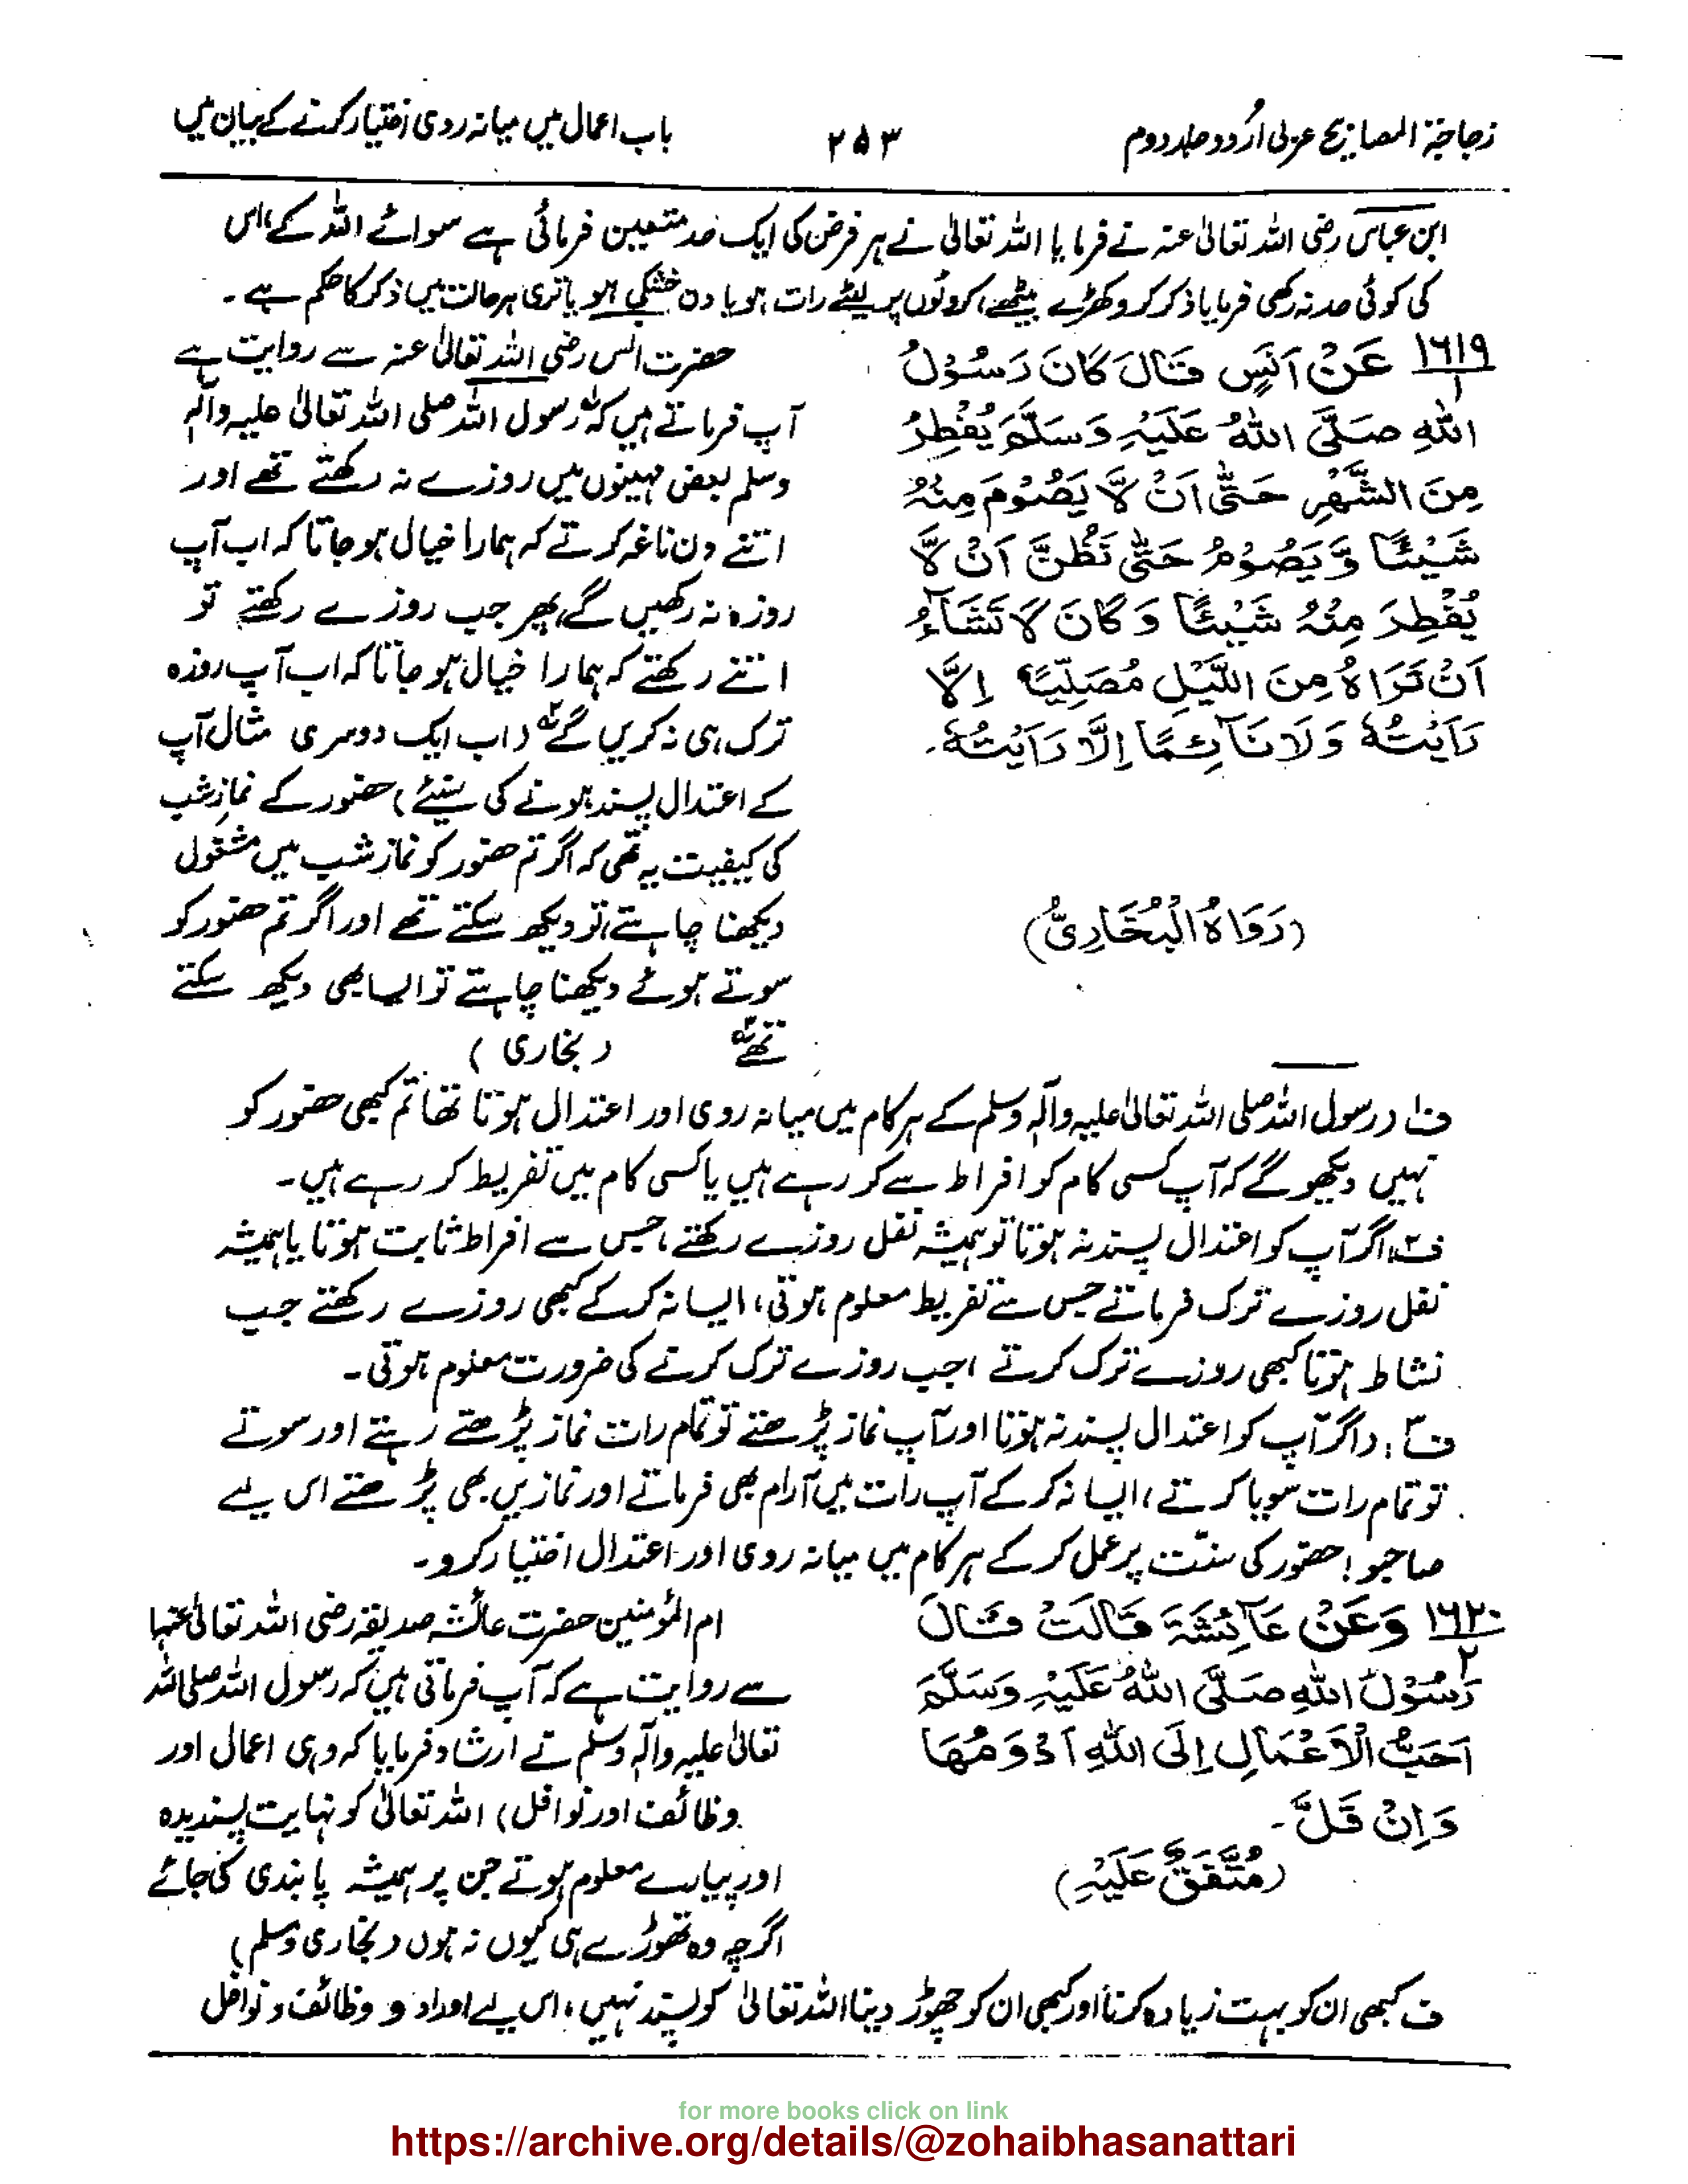 زجاجۃ المصابیح عربی اردو جلد دوم
۲۵۳
باب اعمال میں میانہ روی اختیار کرنے کے بیان میں
ابن عباس رضی اللہ تعالیٰ عنہ نے فرمایا اللہ تعالیٰ نے ہر فرض کی ایک حد متعین فرمائی ہے سوائے اللہ کے، اس
کی کوئی حد نہ رکھی فرمایا ذکر کرو کھڑے بیٹھے، کروٹوں پر لیٹے رات ہو یا دن خشکی ہو یا تری ہر حالت میں ذکر کا حکم ہے۔
۱۶۱۹
۱
عَنْ اَنَسٍ قَالَ كَانَ رَسُوْلُ
اللهِ صَلَّى اللهُ عَلَيْهِ وَسَلَّمَ يُفْطِرُ
مِنَ الشَّهْرِ حَتّٰى اَنْ لَّا يَصُوْمَ مِنْهُ
شَيْئًا وَّيَصُوْمُ حَتّٰى نَظُنَّ اَنْ لَّا
يُفْطِرَ مِنْهُ شَيْئًا وَكَانَ لَا تَشَآءُ
اَنْ تَرَاهُ مِنَ اللَّيْلِ مُصَلِّيًا اِلَّا
رَاَيْتُهٗ وَلَا نَآئِمًا اِلَّا رَاَيْتُهٗ۔
(رَوَاهُ الْبُخَارِيُّ)
حضرت انس رضی اللہ تعالیٰ عنہ سے روایت ہے
آپ فرماتے ہیں کہ رسول اللہ صلی اللہ تعالیٰ علیہ وآلہ
وسلم بعض مہینوں میں روزے نہ رکھتے تھے اور
اتنے دن ناغہ کرتے کہ ہمارا خیال ہو جاتا کہ اب آپ
روزہ نہ رکھیں گے، پھر جب روزے رکھتے تو
اتنے رکھتے کہ ہمارا خیال ہو جاتا کہ اب آپ روزہ
ترک ہی نہ کریں گے (اب ایک دوسری مثال آپ
کے اعتدال پسند ہونے کی سنیئے) حضور کے نماز شب
کی کیفیت یہ تھی کہ اگر تم حضور کو نماز شب میں مشغول
دیکھنا چاہتے، تو دیکھ سکتے تھے اور اگر تم حضور کو
سوتے ہوئے دیکھنا چاہتے تو ایسا بھی دیکھ سکتے
تھے (بخاری)
ف۱ (رسول اللہ صلی اللہ تعالیٰ علیہ وآلہ وسلم کے ہر کام میں میانہ روی اور اعتدال ہوتا تھا تم کبھی حضور کو
نہیں دیکھو گے کہ آپ کسی کام کو افراط سے کر رہے ہیں یا کسی کام میں تفریط کر رہے ہیں۔
ف۲: اگر آپ کو اعتدال پسند نہ ہوتا تو ہمیشہ نفل روزے رکھتے، جس سے افراط ثابت ہوتا یا ہمیشہ
نفل روزے ترک فرماتے جس سے تفریط معلوم ہوتی، ایسا نہ کر کے کبھی روزے رکھتے جب
نشاط ہوتا کبھی روزے ترک کرتے، جب روزے ترک کرنے کی ضرورت معلوم ہوتی۔
ف۳: (اگر آپ کو اعتدال پسند نہ ہوتا اور آپ نماز پڑھتے تو تمام رات نماز پڑھتے رہتے اور سوتے
تو تمام رات سویا کرتے، ایسا نہ کر کے آپ رات میں آرام بھی فرماتے اور نمازیں بھی پڑھتے اس لیے
صاحبو! حضور کی سنّت پر عمل کر کے ہر کام میں میانہ روی اور اعتدال اختیار کرو۔
۱۶۲۰
۲
وَعَنْ عَآئِشَةَ قَالَتْ قَالَ
رَسُوْلُ اللهِ صَلَّى اللهُ عَلَيْهِ وَسَلَّمَ
اَحَبُّ الْاَعْمَالِ اِلَى اللهِ اَدْوَمُهَا
وَاِنْ قَلَّ۔
(مُتَّفَقٌ عَلَيْهِ)
ام المؤمنین حضرت عائشہ صدیقہ رضی اللہ تعالیٰ عنہا
سے روایت ہے کہ آپ فرماتی ہیں کہ رسول اللہ صلی اللہ
تعالیٰ علیہ وآلہ وسلم نے ارشاد فرمایا کہ وہی اعمال اور
وظائف اور نوافل) اللہ تعالیٰ کو نہایت پسندیدہ
اور پیارے معلوم ہوتے جن پر ہمیشہ پابندی کی جائے
اگرچہ وہ تھوڑے ہی کیوں نہ ہوں (بخاری و مسلم)
ف کبھی ان کو بہت زیادہ کرنا اور کبھی ان کو چھوڑ دینا اللہ تعالیٰ کو پسند نہیں، اس لیے اوراد و وظائف و نوافل
for more books click on link
https://archive.org/details/@zohaibhasanattari